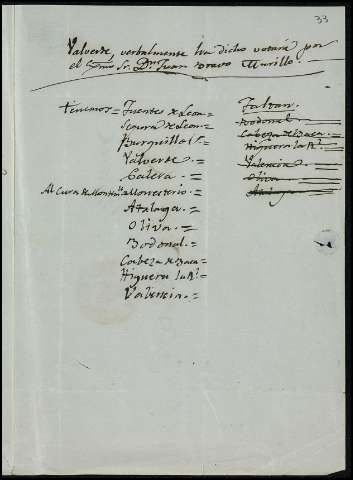 33
Valverde, verbalmente ha dicho votará por
el Exmo Sr. Dn. Juan Bravo Murillo.
tenemos = Fuentes de Leon =
Segura de Leon =
Burguillos =
Valverde =
Calera. =
Al Cura de Monasterio =
Atalaya. =
Oliva. =
Bodonal. =
Cabeza de Baca =
Higuera la Rl. =
Valencia. =
Faltan.
Bodonal
Cabeza de Baca
Higuera la Rl.
Valencia
Oliva
Atalaya